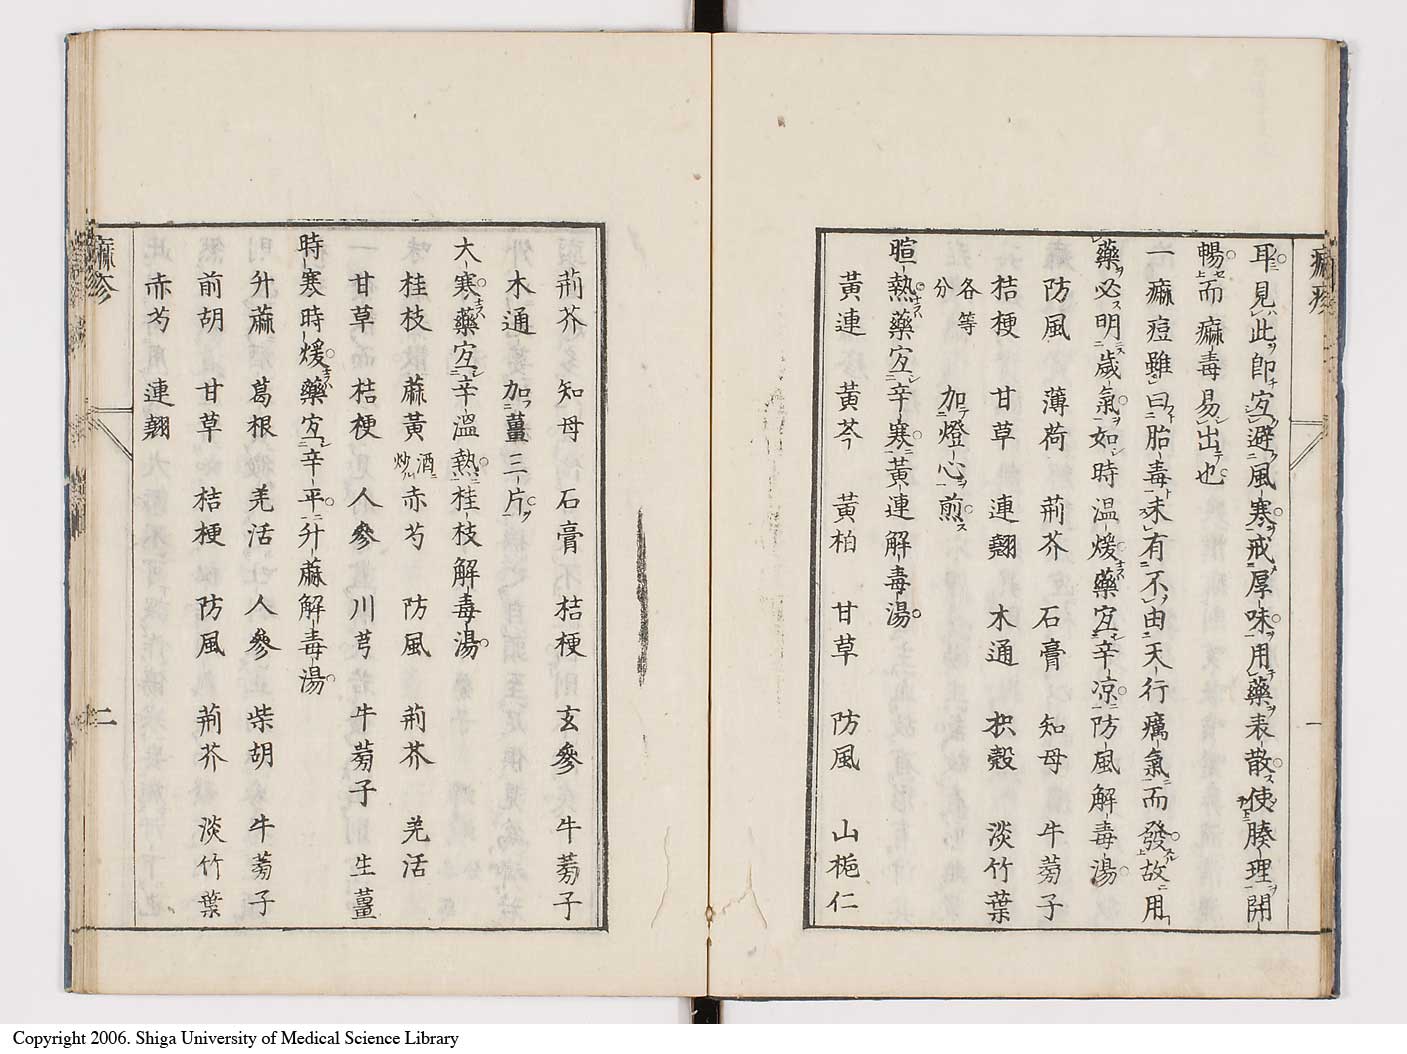 耳見此即宜避風寒戒厚味用藥表散使腠理開
暢而麻毒易出也
一麻痘雖曰胎毒未有不由天行癘氣而發故用
藥必明歲氣如時温煖藥宜辛凉防風解毒湯
防風 薄荷 荊芥 石膏 知母 牛蒡子
桔梗 甘草 連翹 木通 枳殼 淡竹葉
各等分 加燈心煎
暄熱藥宜辛寒黃連解毒湯
黃連 黃芩 黃柏 甘草 防風 山梔仁
荊芥 知母 石膏 桔梗 玄參 牛蒡子
木通 加薑三片
大寒藥宜辛溫熱桂枝解毒湯
桂枝 麻黃酒炒 赤芍 防風 荊芥 羌活
甘草 桔梗 人參 川芎 牛蒡子 生薑
時寒時煖藥宜辛平升麻解毒湯
升麻 葛根 羌活 人參 柴胡 牛蒡子
前胡 甘草 桔梗 防風 荊芥 淡竹葉
赤芍 連翹
麻疹
二
Copyright 2006. Shiga University of Medical Science Library